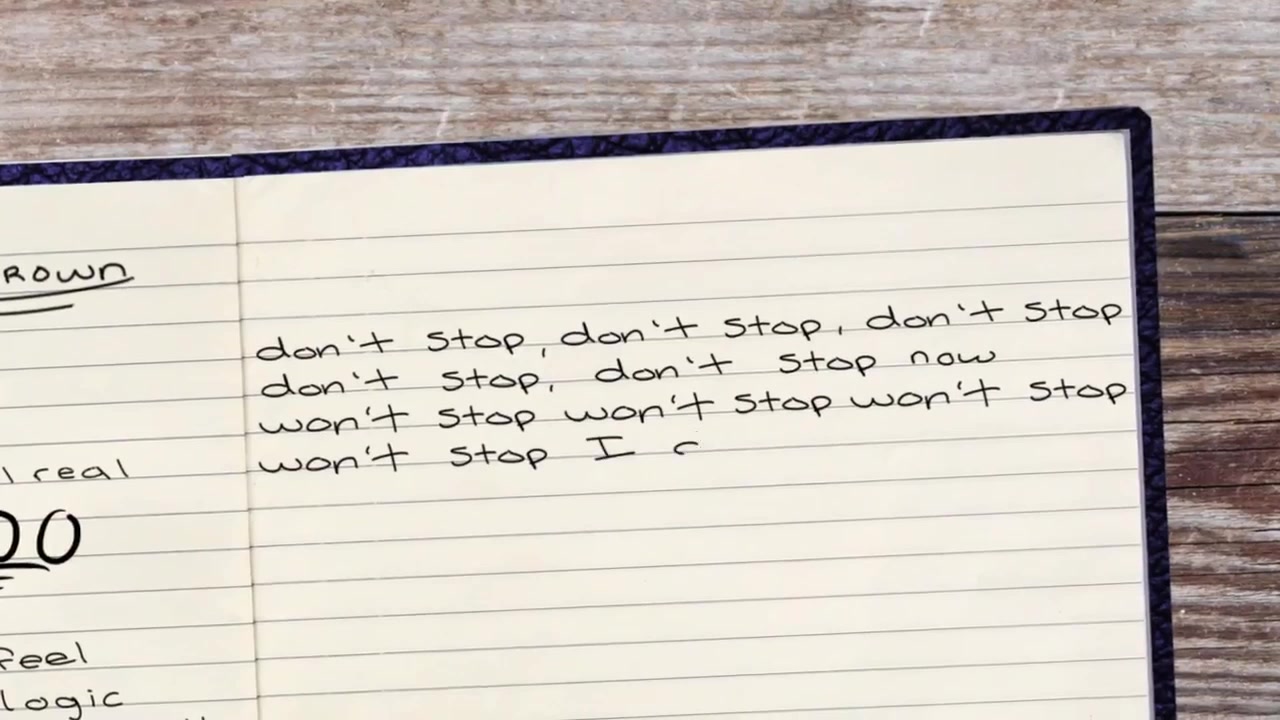 rown
l real
00
feel
logic
don't stop, don't stop, don't stop
don't stop, don't stop now
won't stop won't stop won't stop
won't stop I c